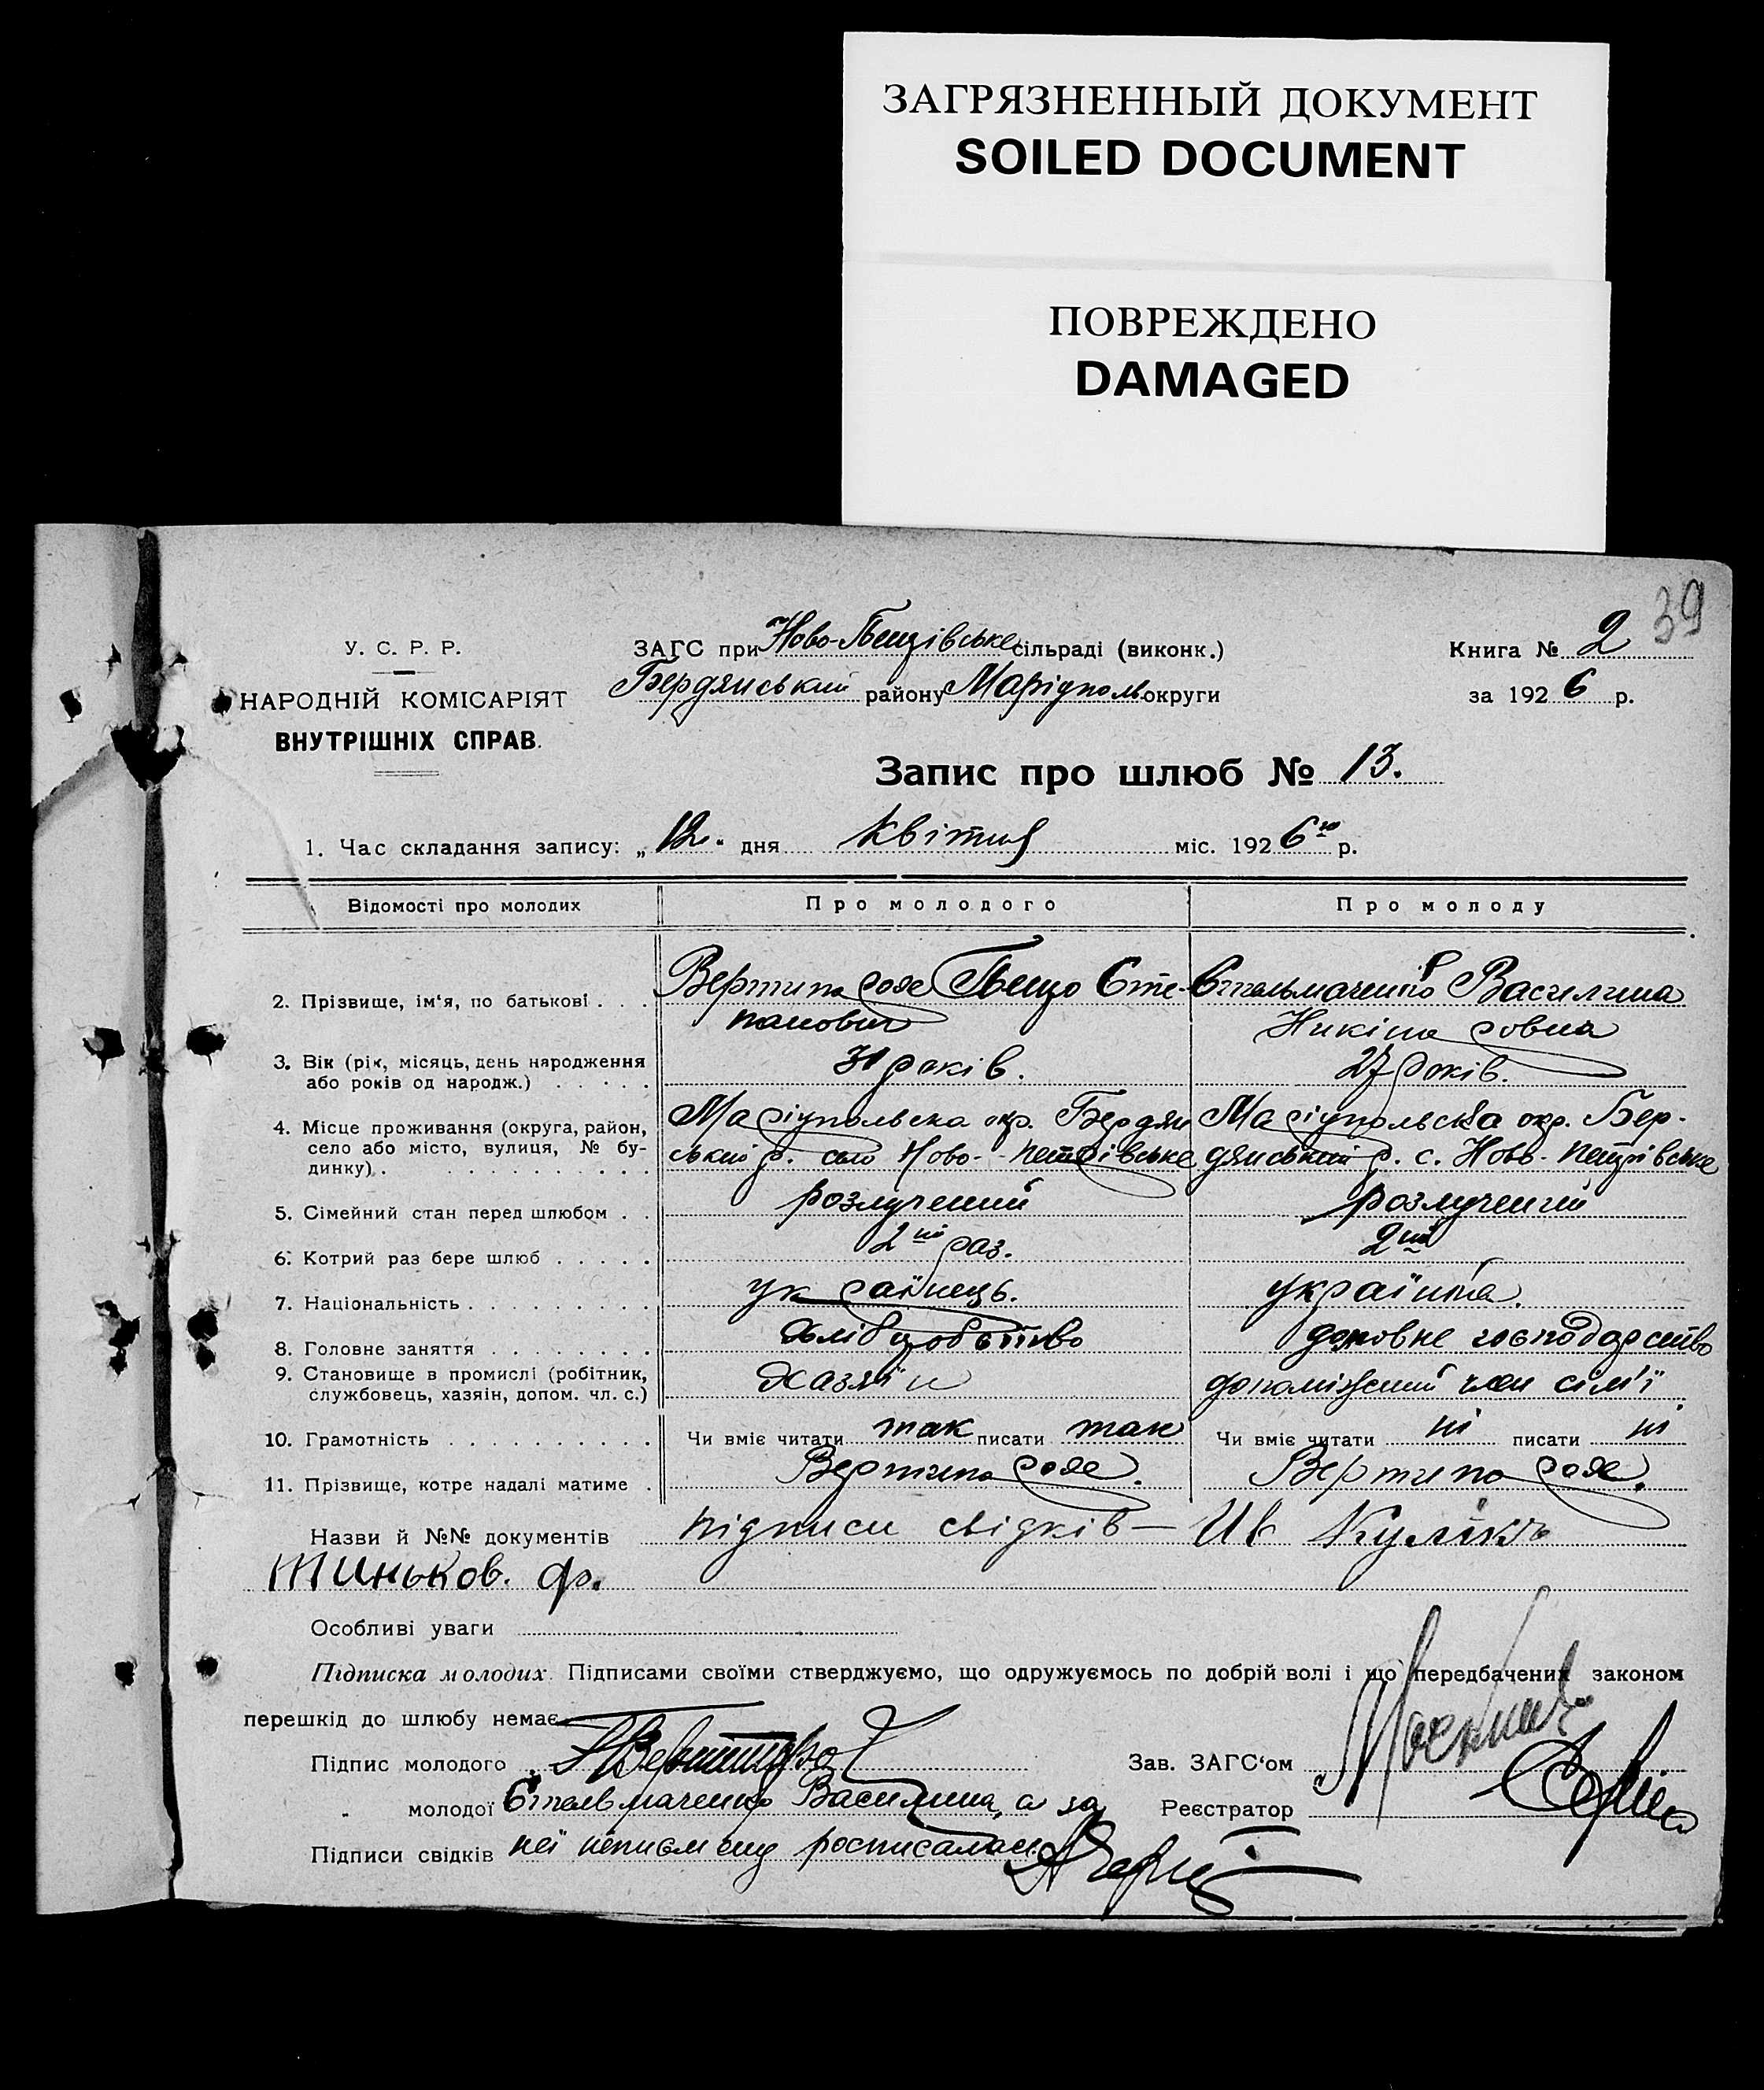 ЗАГРЯЗНЕННЫЙ ДОКУМЕНТ
SOILED DOCUMENT
ПОВРЕЖДЕНО
DAMAGED
39
У. С. Р. Р.
НАРОДНІЙ КОМІСАРІЯТ
ВНУТРІШНІХ СПРАВ.
ЗАГС при Ново-Петрівське сільраді (виконк.)
Бердянський району Маріуполь округи
Книга № 2
за 1926 р.
Запис про шлюб № 13.
1. Час складання запису: „12" дня квітня міс. 1926го р.
Відомості про молодих Про молодого Про молоду
2. Прізвище, ім'я, по батькові . . . Вертипорох Петро Сте- Стельмаченко Василина
панович Никіпоровна
3. Вік (рік, місяць, день народження
або років од народж.) . . . . . 31 років. 27 років.
4. Місце проживання (округа, район, Маріупольска окр. Бердян Маріупольська окр. Бер-
село або місто, вулиця, № бу- ський р. село Ново-Петрівське дянський р. с. Ново-Петрівське
динку) . . . . . . . . . . .
5. Сімейний стан перед шлюбом . . розлучений розлучений
6. Котрий раз бере шлюб . . . . . 2ий раз. 2ий
7. Національність . . . . . . . . . українець. українка.
8. Головне заняття . . . . . . . . хлібороbство домовне господарство
9. Становище в промислі (робітник,
службовець, хазяін, допом. чл. с.) хазяїн допоміжний член сім'ї
10. Грамотність . . . . . . . . . . Чи вміє читати так писати так Чи вміє читати ні писати ні
11. Прізвище, котре надалі матиме . Вертипорох. Вертипорох.
Назви й №№ документів підписи свідків — Ив Кулікъ
Тиньков. Ф.
Особливі уваги
Підписка молодих. Підписами своїми стверджуємо, що одружуємось по добрій волі і що передбачених законом
перешкід до шлюбу немає.
Підпис молодого Зав. ЗАГС'ом
молодої Стельмаченко Василина, а за Реєстратор
Підписи свідків неї неписьмену росписалась